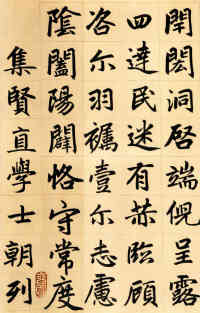 閈閎洞啓端倪呈露
四達民迷有恭臨顧
咨尓羽襬壹尓志慮
陰闔陽闢恪守常度
集賢直學士朝列